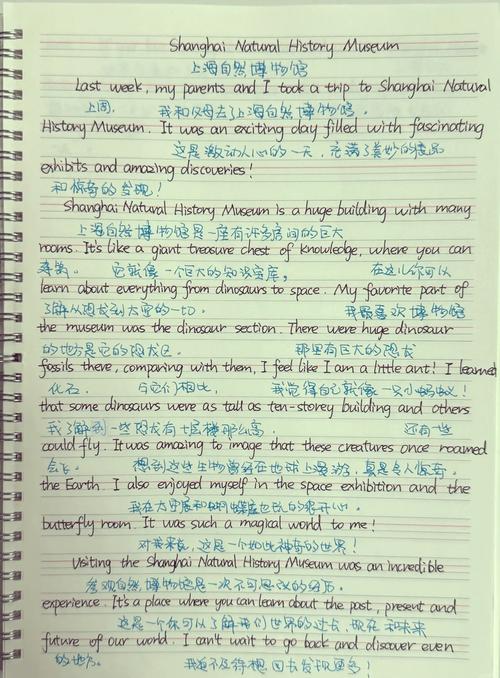 Shanghai Natural History Museum
上海自然博物馆
Last week, my parents and I took a trip to Shanghai Natural
上周, 我和父母去了上海自然博物馆.
History Museum. It was an exciting day filled with fascinating
这是激动人心的一天, 充满了美妙的展品
exhibits and amazing discoveries!
和惊奇的发现!
Shanghai Natural History Museum is a huge building with many
上海自然博物馆是一座有许多房间的巨大
rooms. It's like a giant treasure chest of knowledge, where you can
建筑. 它就像一个巨大的知识宝库, 在这儿你可以
learn about everything from dinosaurs to space. My favorite part of
了解从恐龙到太空的一切. 我最喜欢博物馆
the museum was the dinosaur section. There were huge dinosaur
的地方是它的恐龙区. 那里有巨大的恐龙
fossils there, comparing with them, I feel like I am a little ant! I learned
化石. 与它们相比, 我觉得自己就像一只小蚂蚁!
that some dinosaurs were as tall as ten-storey building and others
我了解到一些恐龙有十层楼那么高. 还有一些
could fly. It was amazing to image that these creatures once roamed
会飞. 想到这些生物曾经在地球上漫游, 真是令人惊奇.
the Earth. I also enjoyed myself in the space exhibition and the
我在太空展和蝴蝶屋也玩的很开心.
butterfly room. It was such a magical world to me!
对我来说, 这是一个如此神奇的世界!
Visiting the Shanghai Natural History Museum was an incredible
参观自然博物馆是一次不可思议的经历.
experience. It's a place where you can learn about the past, present and
这是一个你可以了解我们世界的过去, 现在和未来
future of our world. I can't wait to go back and discover even
的地方. 我迫不及待想回去发现更多!